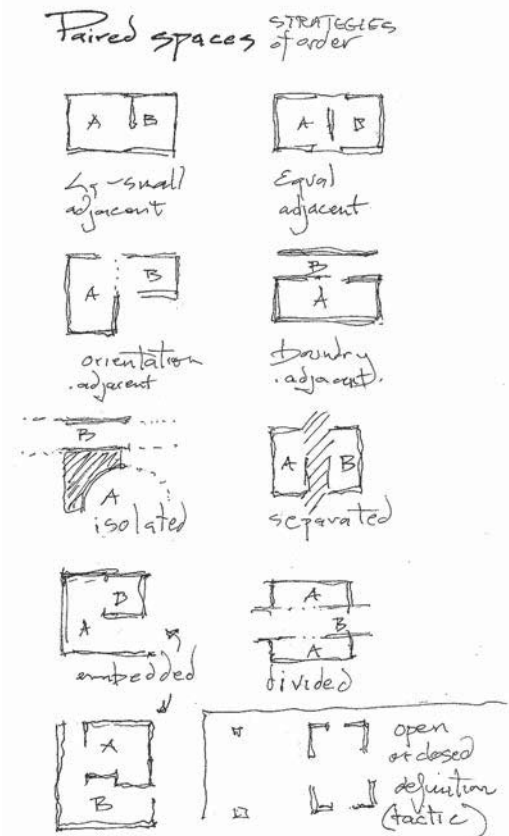 Paired spaces STRATEGIES
of order
A B
A B
Lg-small
adjacent
Equal
adjacent
A B
B
A
orientation
.adjacent
boundry
.adjacent.
B
A
isolated
A B
separated
B
A
embedded
A
B
A
divided
A
B
open
or closed
definition
(tactic)